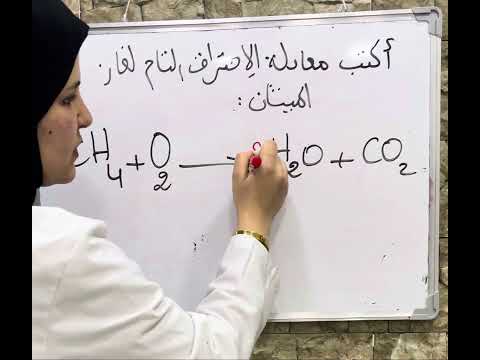 أكتب معادلة الإحتراق التام لغاز
الميثان :
H4 + O2 → 2H2O + CO2